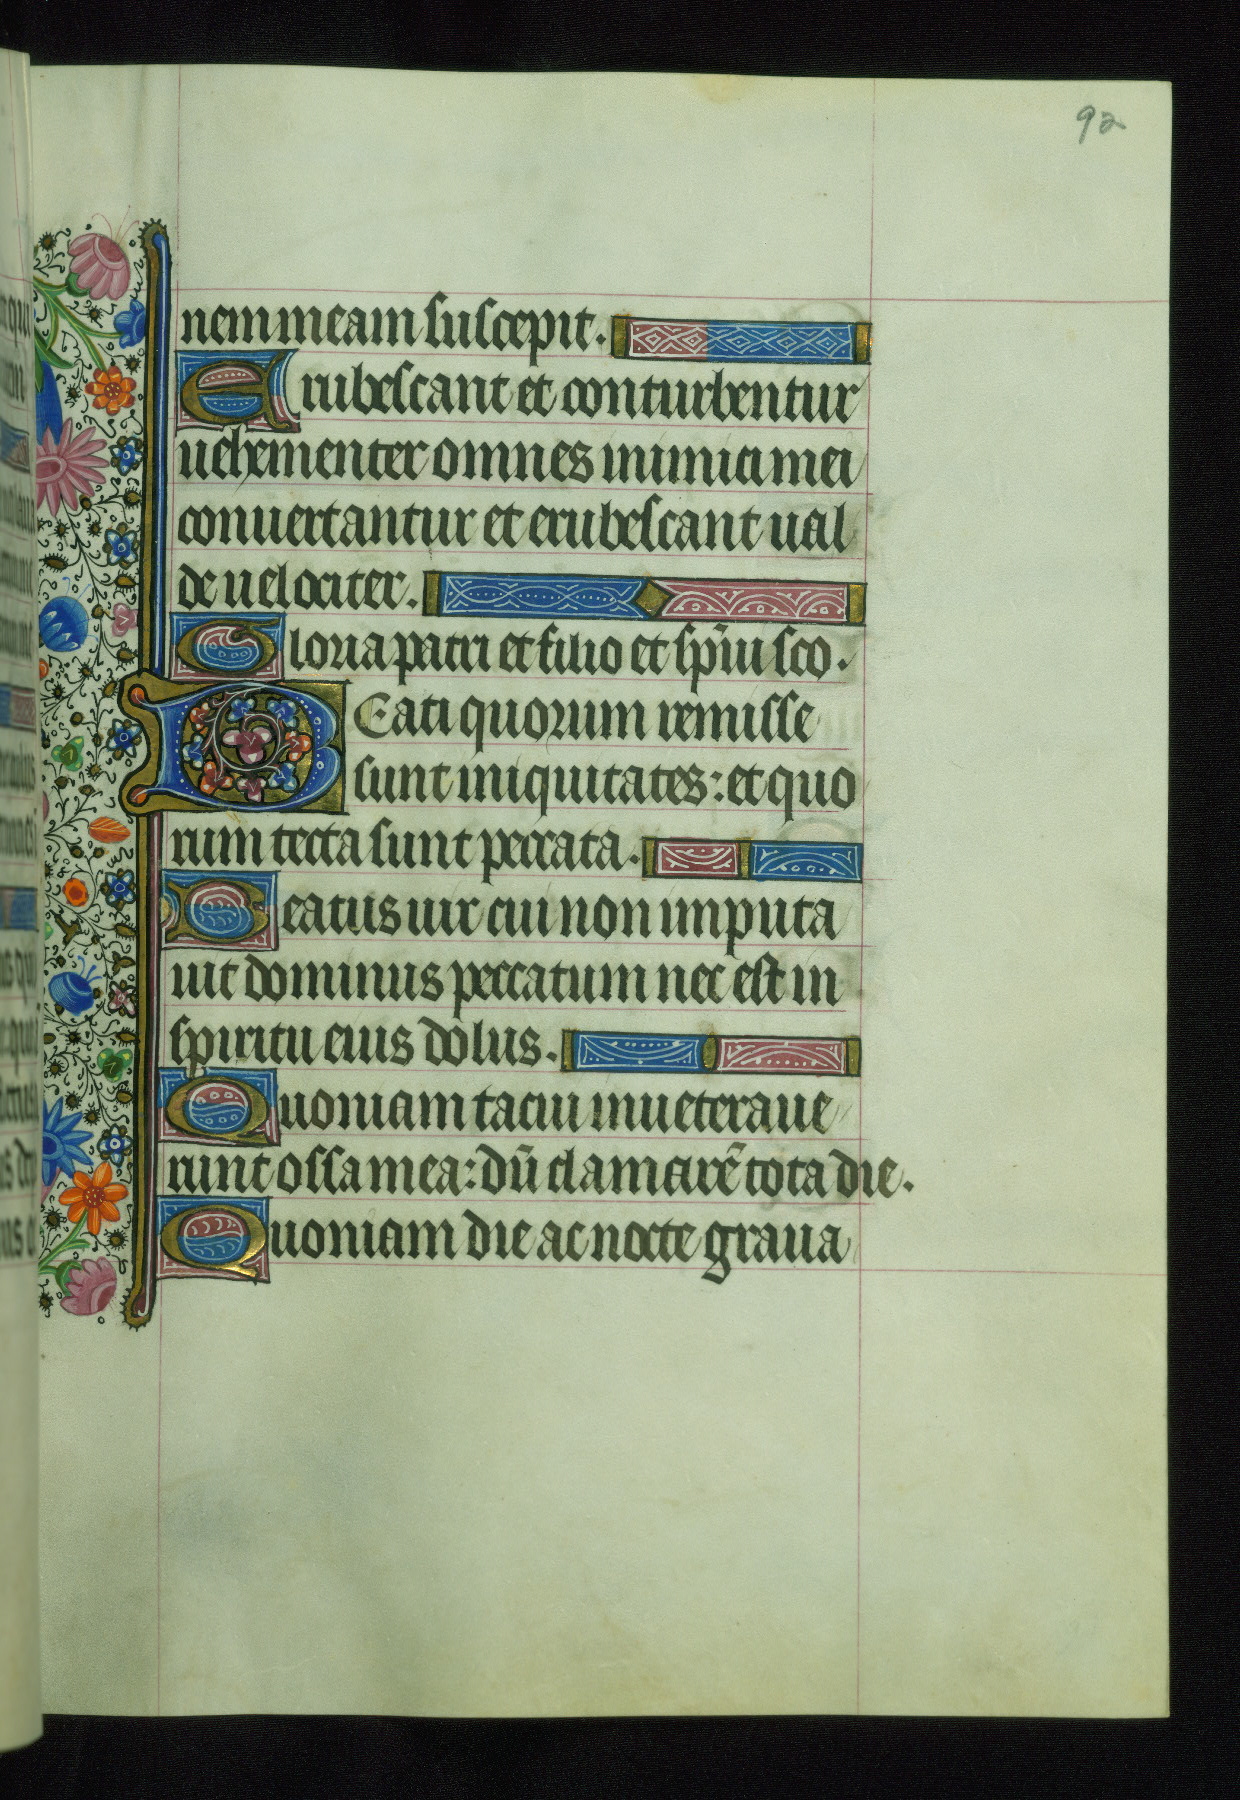 92
nem meam suscepit.
Erubescant et conturbentur
uehementer omnes inimici mei
conuertantur et erubescant ual
de uelociter.
Gloria patri et filio et sp̄iui sco.
BEati quorum remisse
sunt iniquitates: et quo
rum tecta sunt peccata.
Beatus uir cui non imputa
uit dominus peccatum nec est in
spiritu eius dolus.
Quoniam tacui inueteraue
runt ossa mea: dū clamarē tota die.
Quoniam die ac nocte graua